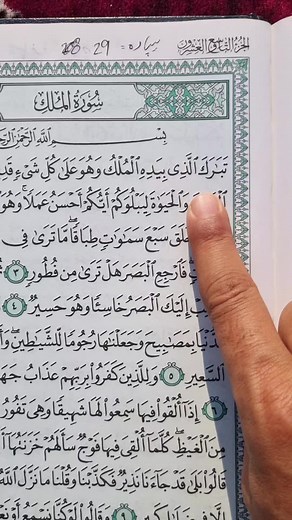 الجزء التاسع والعشرون
سپاره = 29
سُورَةُ المُلْكِ
بِسْمِ اللَّهِ الرَّحْمَٰنِ الرَّحِيمِ
تَبَٰرَكَ ٱلَّذِى بِيَدِهِ ٱلْمُلْكُ وَهُوَ عَلَىٰ كُلِّ شَىْءٍ
وَٱلْحَيَوٰةَ لِيَبْلُوَكُمْ أَيُّكُمْ أَحْسَنُ عَمَلًا ۚ وَهُوَ
خَلَقَ سَبْعَ سَمَٰوَٰتٍ طِبَاقًا ۖ مَّا تَرَىٰ فِى
فَٱرْجِعِ ٱلْبَصَرَ هَلْ تَرَىٰ مِن فُطُورٍ ٣
إِلَيْكَ ٱلْبَصَرُ خَاسِئًا وَهُوَ حَسِيرٌ ٤
بِمَصَٰبِيحَ وَجَعَلْنَٰهَا رُجُومًا لِّلشَّيَٰطِينِ ۖ
ٱلسَّعِيرِ ٥ وَلِلَّذِينَ كَفَرُوا۟ بِرَبِّهِمْ عَذَابُ
٦ إِذَآ أُلْقُوا۟ فِيهَا سَمِعُوا۟ لَهَا شَهِيقًا وَهِىَ تَفُورُ
مِنَ ٱلْغَيْظِ ۖ كُلَّمَآ أُلْقِىَ فِيهَا فَوْجٌ سَأَلَهُمْ خَزَنَتُهَآ
قَالُوا۟ بَلَىٰ قَدْ جَآءَنَا نَذِيرٌ فَكَذَّبْنَا وَقُلْنَا مَا نَزَّلَ ٱللَّهُ
٩ وَقَالُوا۟ لَوْ كُنَّا نَسْمَعُ أَوْ